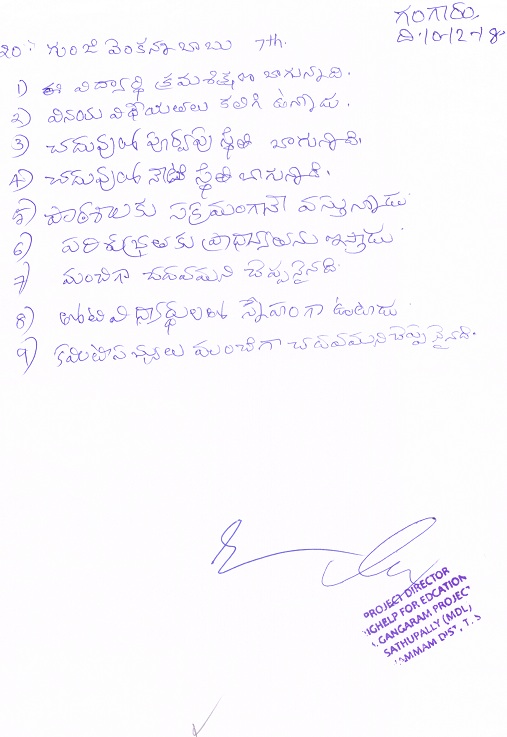 గంగారం
ది.10-12-18
20. గుంజి వెంకన్నబాబు 7th.
1) ఈ విద్యార్థి క్రమశిక్షణ బాగున్నది.
2) వినయ విధేయతలు కలిగి ఉన్నాడు.
3) చదువులో పూర్వపు స్థితి బాగున్నది.
4) చదువులో నేటి స్థితి బాగున్నది.
5) పాఠశాలకు సక్రమంగానే వస్తున్నాడు
6) పరిశుభ్రతకు ప్రాధాన్యతను ఇస్తాడు
7) మంచిగా చదవమని చెప్పనైనది
8) తోటి విద్యార్థులతో స్నేహంగా ఉంటాడు
9) కమిటీసభ్యులు మంచిగా చదవమని చెప్పనైనది.
PROJECT DIRECTOR
HELP FOR EDCATION
GANGARAM PROJECT
SATHUPALLY (MDL)
DIST, T.S